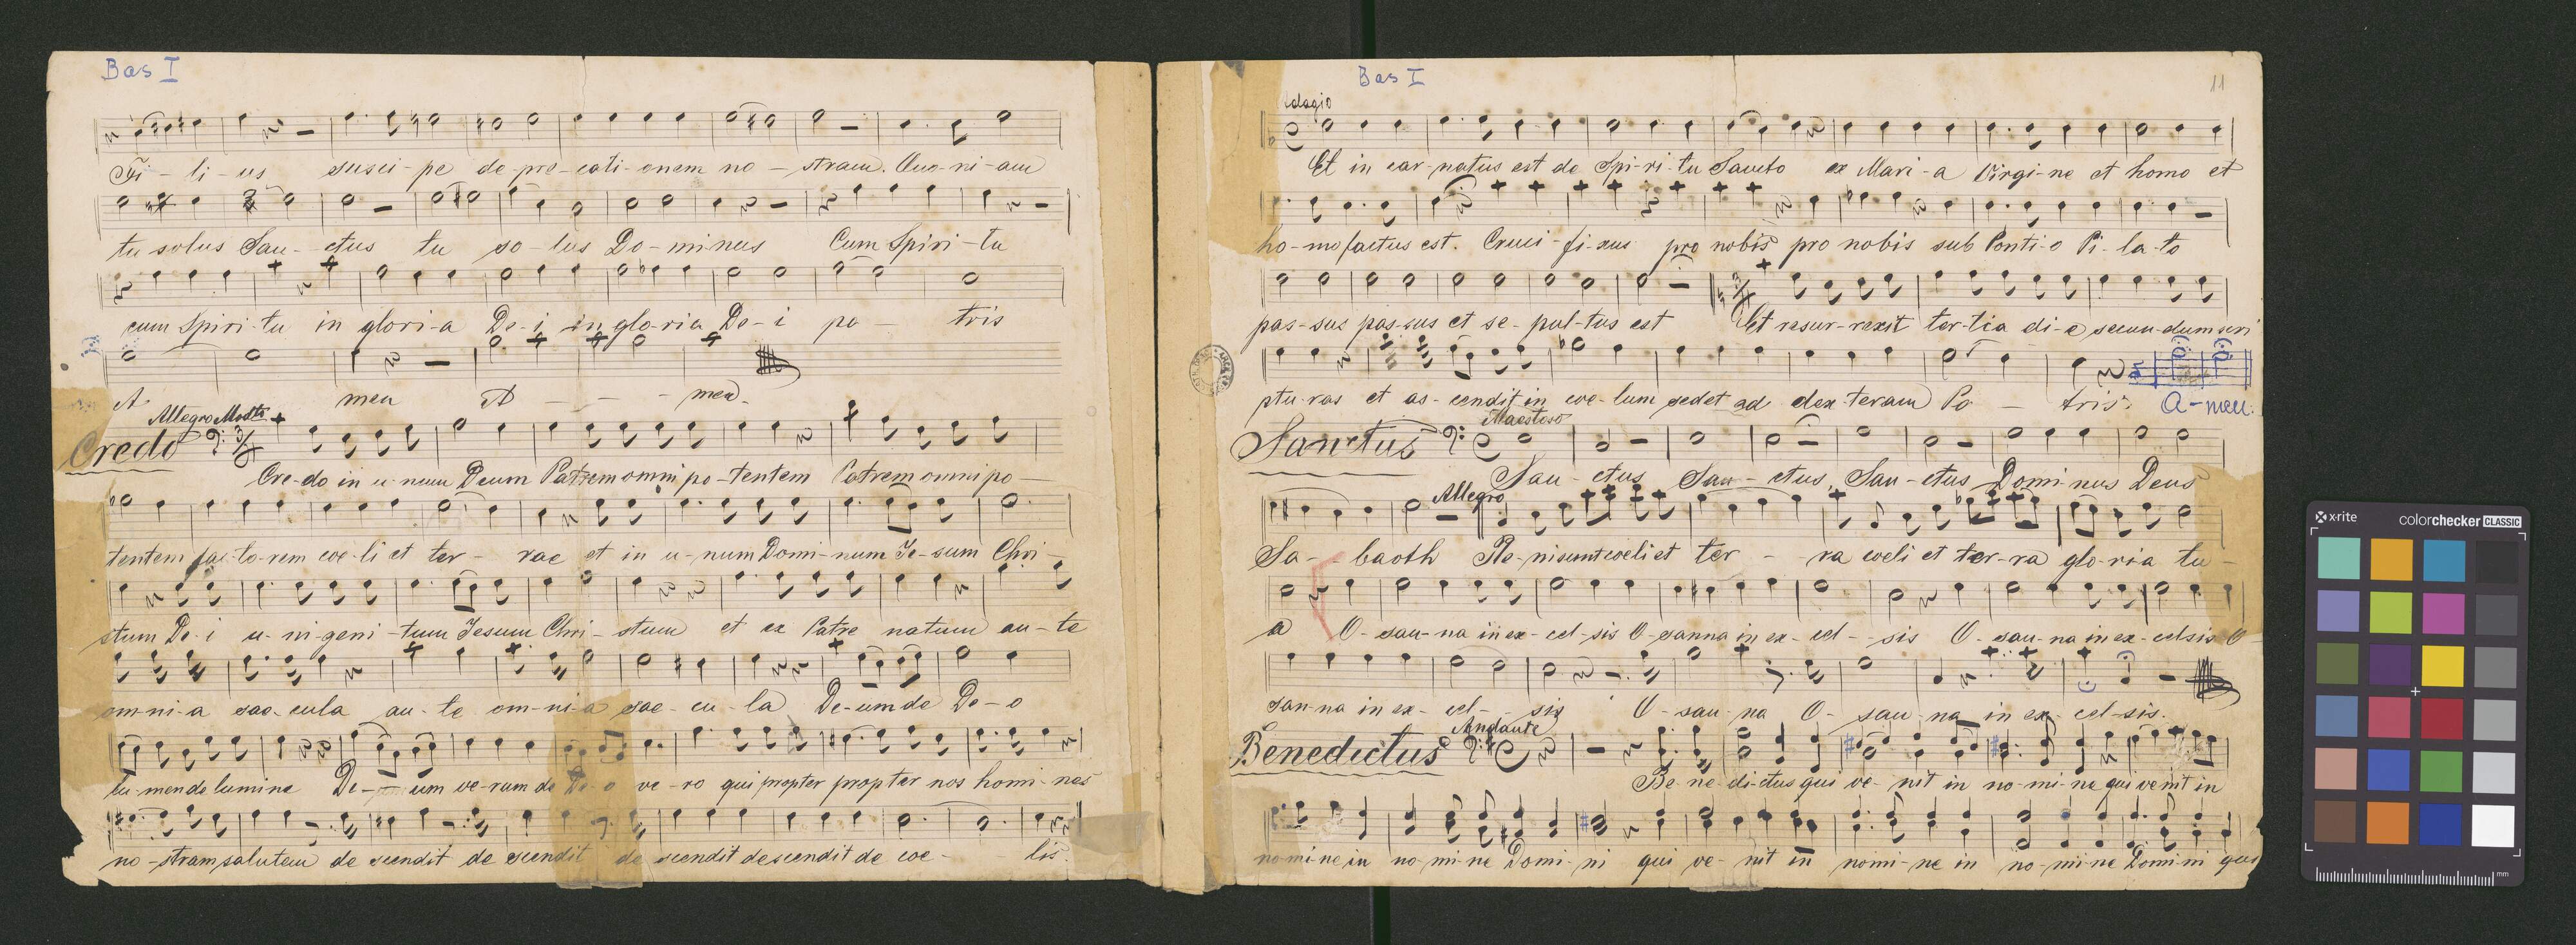 Bas I
Fi - li - us susci - pe de - pre - cati - onem no - stram. Quo - ni - am
tu solus San - ctus tu so - lus Do - minus Cum Spiri - tu
cum Spiri - tu in glori - a De - i in glo - ria De - i pa - tris
A - men A - - - men.
Allegro Modto
Credo
Cre - do in u - num Deum Patrem omni po - tentem Patrem omni po -
tentem fac - to - rem coe - li et ter - rae et in u - num Domi - num Je - sum Chri -
stum De - i u - ni - geni - tum Jesum Chri - stum et ex Patre natum an - te
om - ni - a sae - cula an - te om - ni - a sae - cu - la De - um de De - o
lu - men de lumine De - - um ve - rum de De - o ve - ro qui propter propter nos homi - nes
no - stram salutem de scendit de scendit de scendit descendit de coe - lis.
Bas I
11
adagio
Et in car - natus est de Spi - ri - tu Sancto ex Mari - a Virgi - ne et homo et
ho - mo factus est. Cruci - fi - xus pro nobis pro nobis sub Ponti - o Pi - la - to
pas - sus pas - sus et se - pul - tus est Et resur - rexit ter - tia di - e secun - dum scri
ptu - ras et as - cendit in coe - lum sedet ad dex teram Pa - tris. A - men.
Maestoso
Sanctus
San - ctus San - ctus, San - ctus Domi - nus Deus
Allegro
Sa - baoth Ple - ni sunt coeli et ter - ra coeli et ter - ra glo - ria tu -
a O - san - na in ex - cel - sis O - sanna in ex - cel - - sis O - san - na in ex - celsis O -
san - na in ex - cel - - sis O - san - na O - san - na in ex - cel - sis.
Andante
Benedictus
Be - ne - di - ctus qui ve - nit in no - mi - ne qui venit in
no - mi - ne in no - mi - ne Domi - ni qui ve - nit in nomi - ne in no - mi - ne Domi - ni qui
x-rite
colorchecker CLASSIC
mm